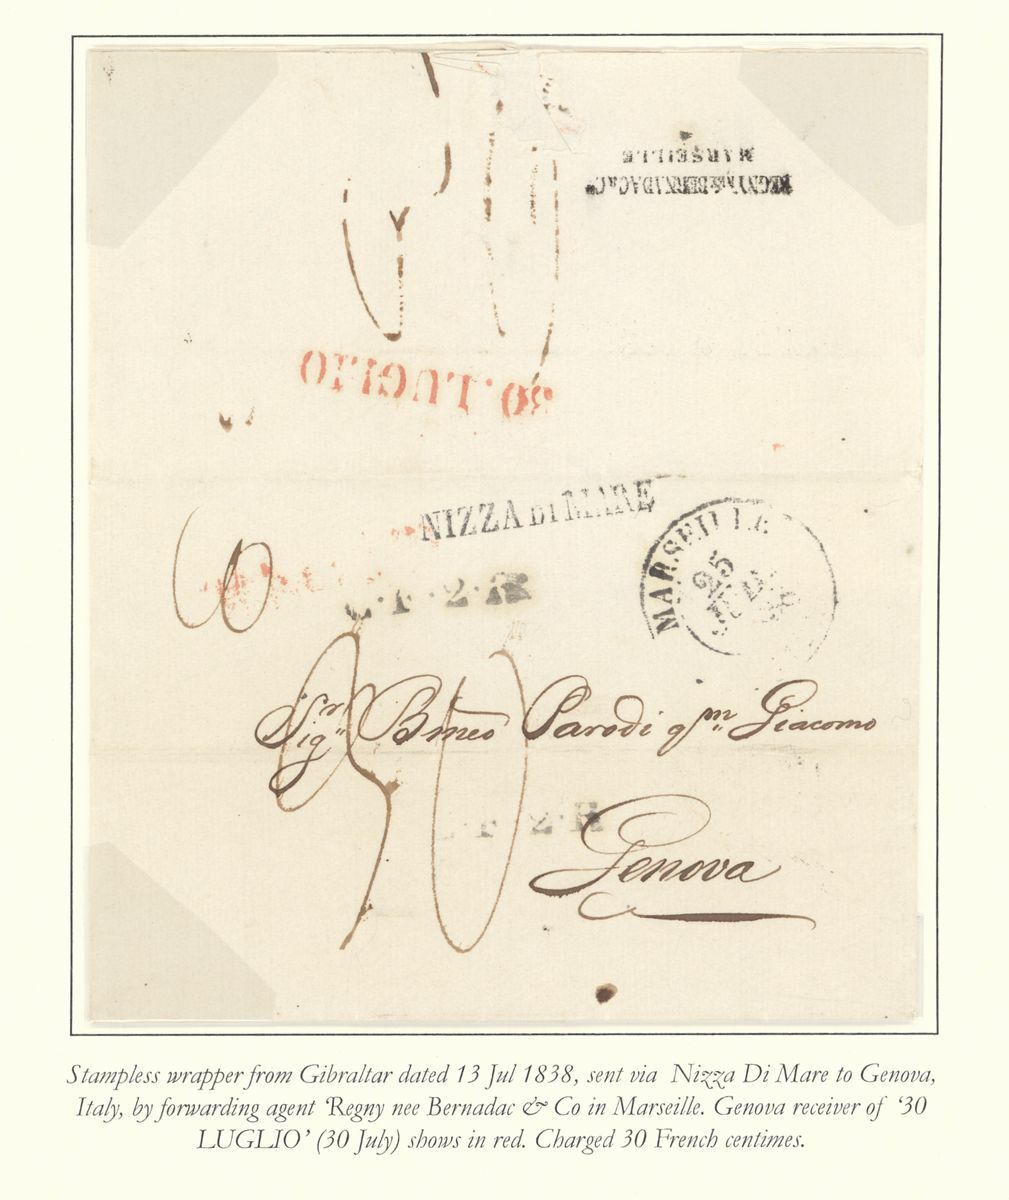 REGNY née BERNADAC & Cie
MARSEILLE
30. LUGLIO
NIZZA DI MARE
MARSEILLE
25
60
2.R
Sigr Bmeo Parodi qm Giacomo
30
2.R
Genova
Stampless wrapper from Gibraltar dated 13 Jul 1838, sent via Nizza Di Mare to Genova,
Italy, by forwarding agent 'Regny nee Bernadac & Co in Marseille. Genova receiver of '30
LUGLIO' (30 July) shows in red. Charged 30 French centimes.